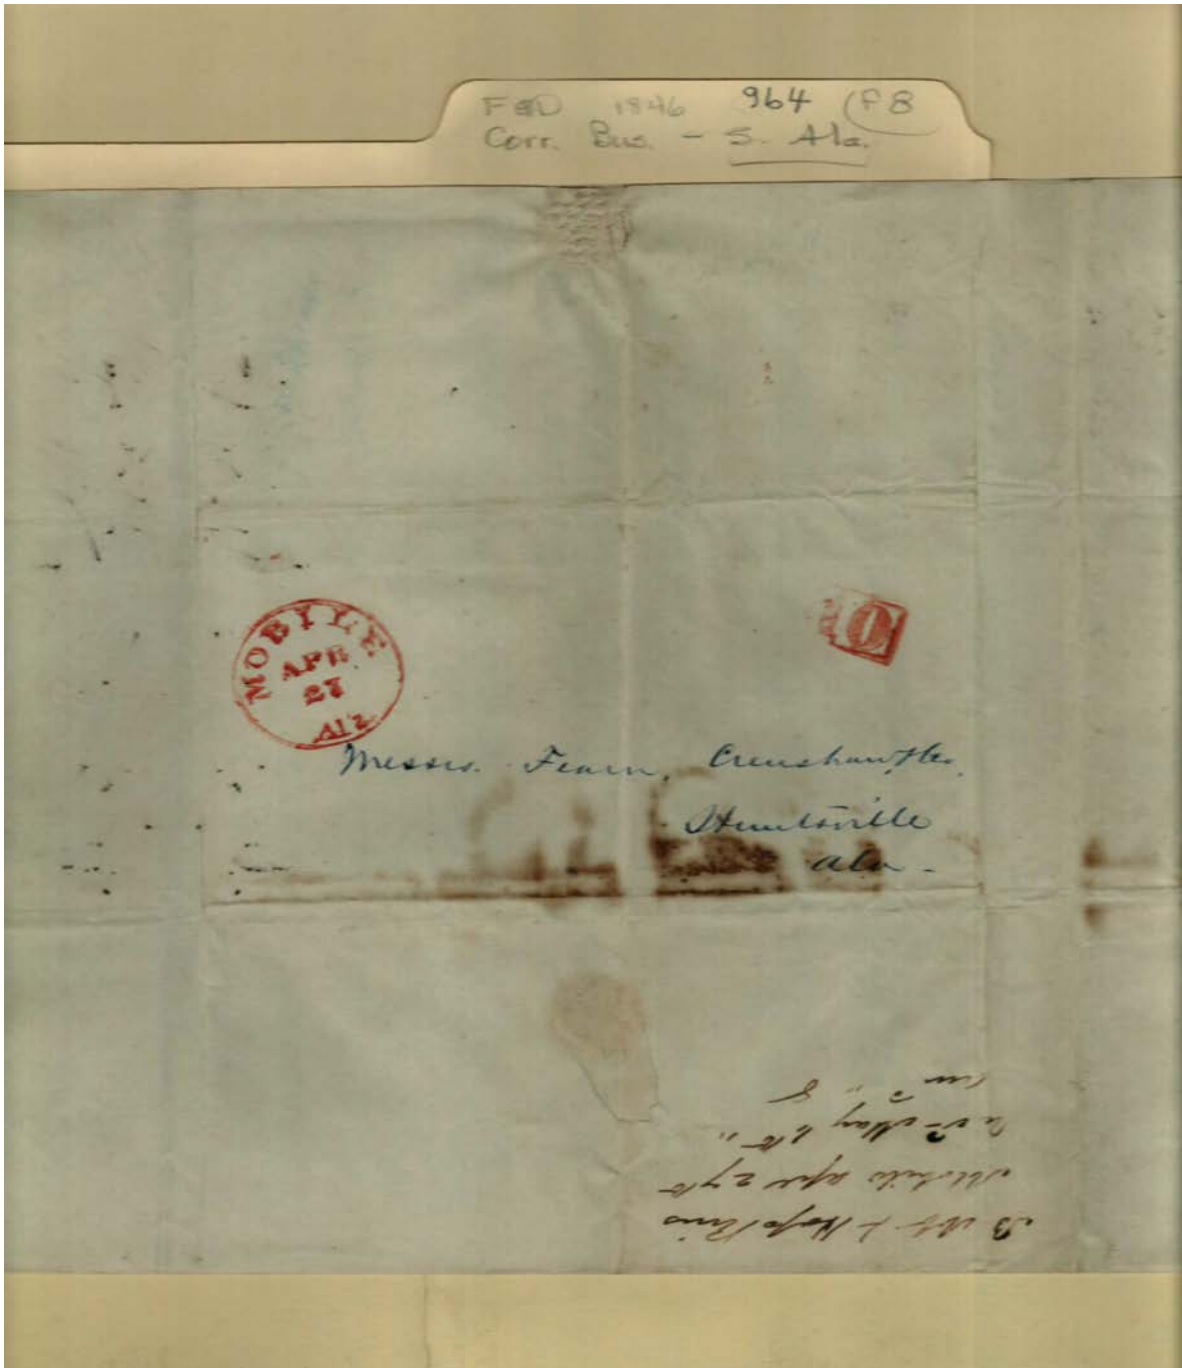 F&D 1846 964 (F8
Corr. Bus. - S. Ala.
MOBILE
APR
27
Ala
10
Messrs. Fearn, Crenshaw & Co.
Huntsville
Ala -
Mobile apl 27th
May 6th "